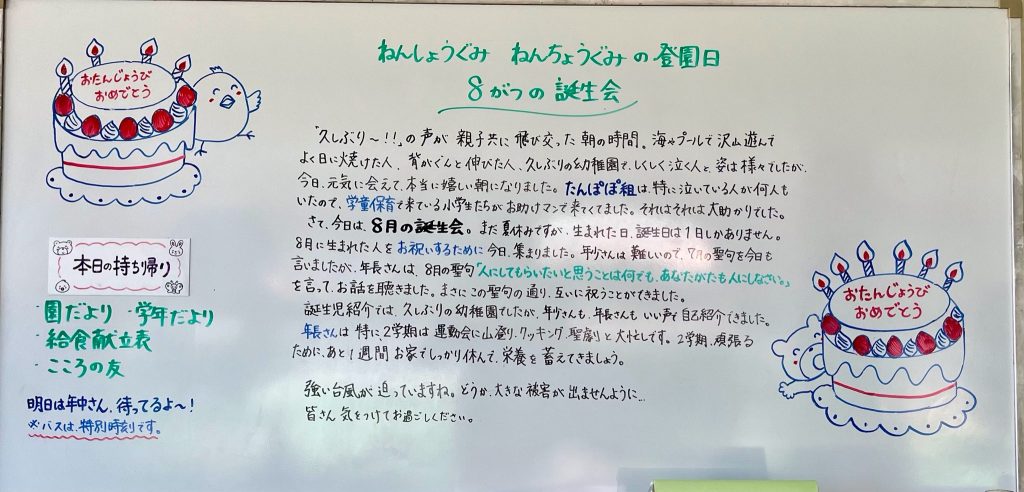 おたんじょうび
おめでとう
ねんしょうぐみ ねんちょうぐみの登園日
8がつの誕生会
「久しぶり〜!!」の声が親子共に飛び交った朝の時間、海やプールで沢山遊んで
よく日に焼けた人、背がぐんと伸びた人、久しぶりの幼稚園で、しくしく泣く人と、姿は様々でしたが、
今日、元気に会えて、本当に嬉しい朝になりました。たんぽぽ組は、特に泣いている人が何人も
いたので、学童保育で来ている小学生たちがお助けマンで来てくてました。それはそれは大助かりでした。
さて、今日は、8月の誕生会。まだ夏休みですが、生まれた日、誕生日は1日しかありません。
8月に生まれた人をお祝いするために今日、集まりました。年少さんは難しいので、7月の聖句を今日も
言いましたが、年長さんは、8月の聖句「人にしてもらいたいと思うことは何でも、あなたがたも人にしなさい。」
を言って、お話を聴きました。まさにこの聖句の通り、互いに祝うことができました。
誕生児紹介では、久しぶりの幼稚園でしたが、年少さんも、年長さんもいい声で自己紹介できました。
年長さんは特に、2学期は運動会に山登り、クッキング、聖劇と大忙しです。2学期、頑張る
ために、あと1週間お家でしっかり休んで、栄養を蓄えてきましょう。
強い台風が迫っていますね。どうか、大きな被害が出ませんように…
皆さん気をつけてお過ごしください。
本日の持ち帰り
・園だより ・学年だより
・給食献立表
・こころの友
明日は年中さん、待ってるよ〜!
※バスは、特別時刻です。
おたんじょうび
おめでとう